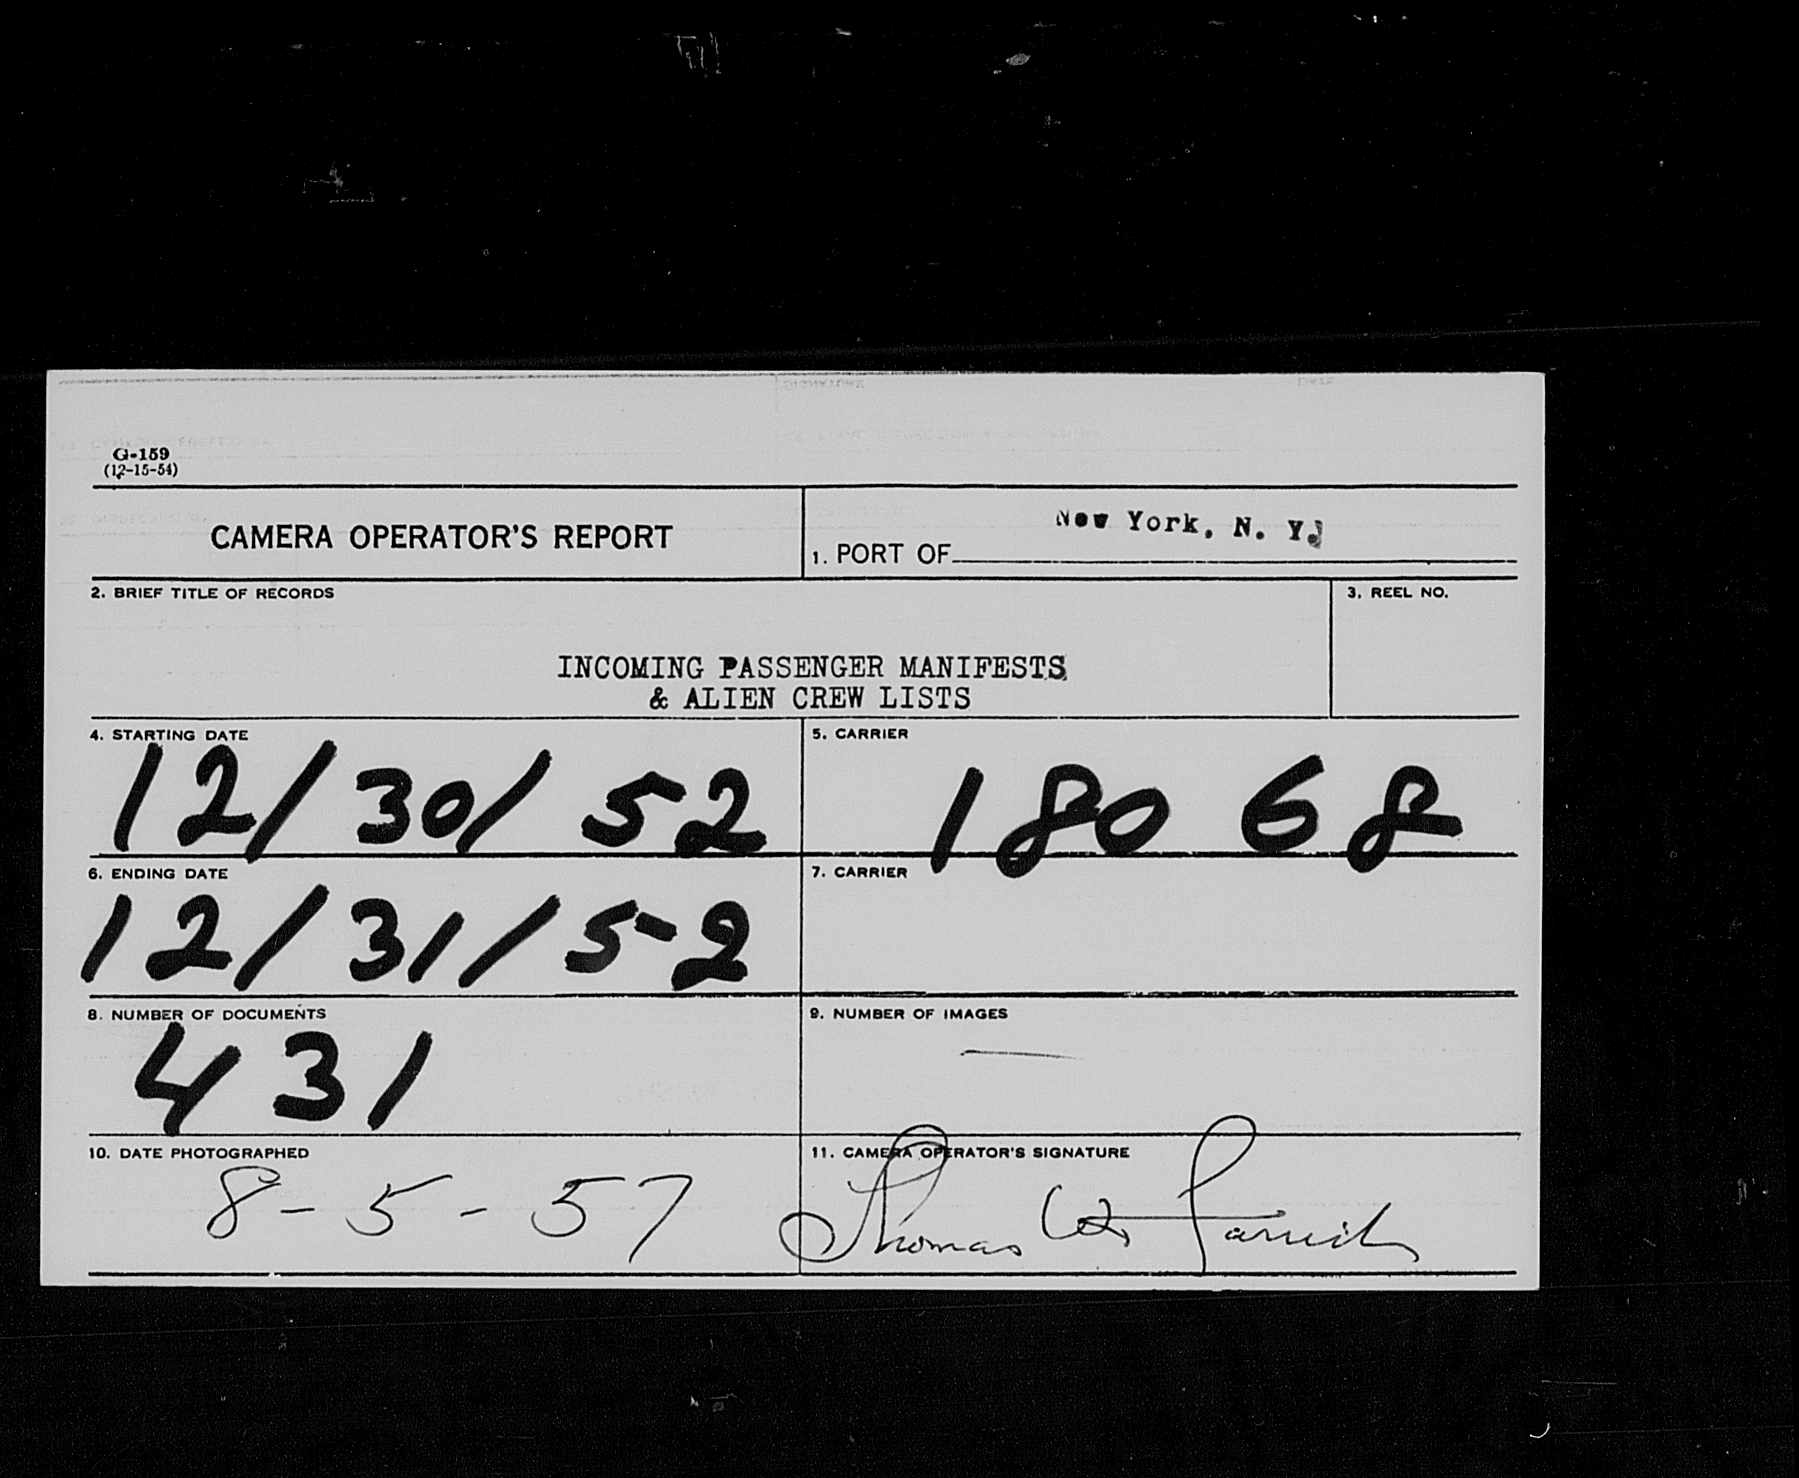 G-159
(12-15-54)
CAMERA OPERATOR'S REPORT
1. PORT OF New York, N. Y.
2. BRIEF TITLE OF RECORDS
INCOMING PASSENGER MANIFESTS
& ALIEN CREW LISTS
3. REEL NO.
4. STARTING DATE
12/30/52
5. CARRIER
18068
6. ENDING DATE
12/31/52
7. CARRIER
8. NUMBER OF DOCUMENTS
431
9. NUMBER OF IMAGES
—
10. DATE PHOTOGRAPHED
8-5-57
11. CAMERA OPERATOR'S SIGNATURE
Thomas W